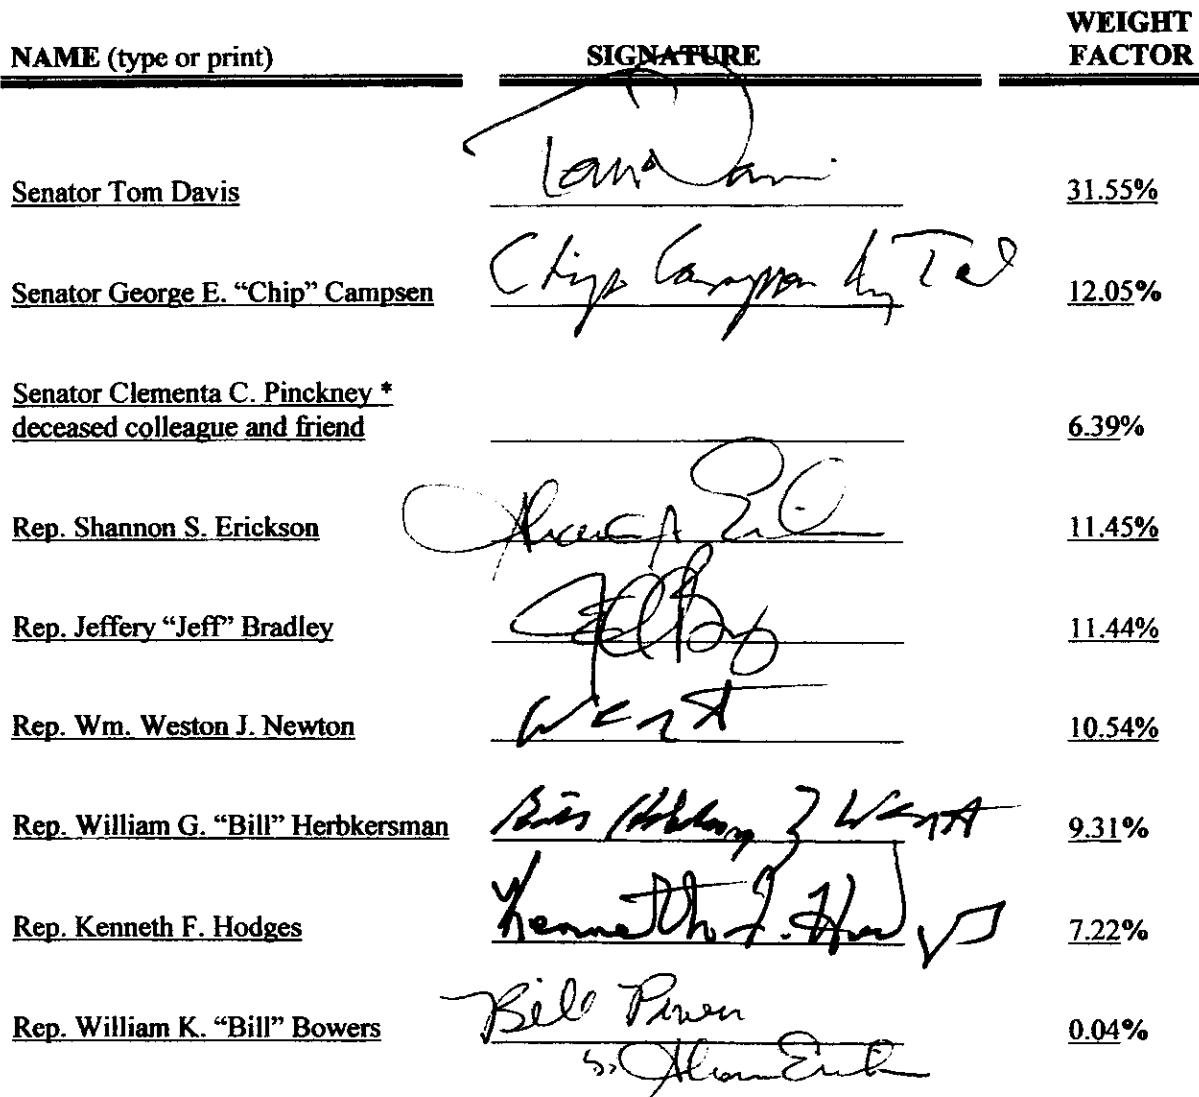 NAME (type or print) SIGNATURE WEIGHT FACTOR
Senator Tom Davis Tom Davis 31.55%
Senator George E. “Chip” Campsen Chip Campsen by Ted 12.05%
Senator Clementa C. Pinckney *
deceased colleague and friend 6.39%
Rep. Shannon S. Erickson 11.45%
Rep. Jeffery “Jeff” Bradley 11.44%
Rep. Wm. Weston J. Newton 10.54%
Rep. William G. “Bill” Herbkersman Bill 9.31%
Rep. Kenneth F. Hodges Kenneth F. 7.22%
Rep. William K. “Bill” Bowers Bill 0.04%